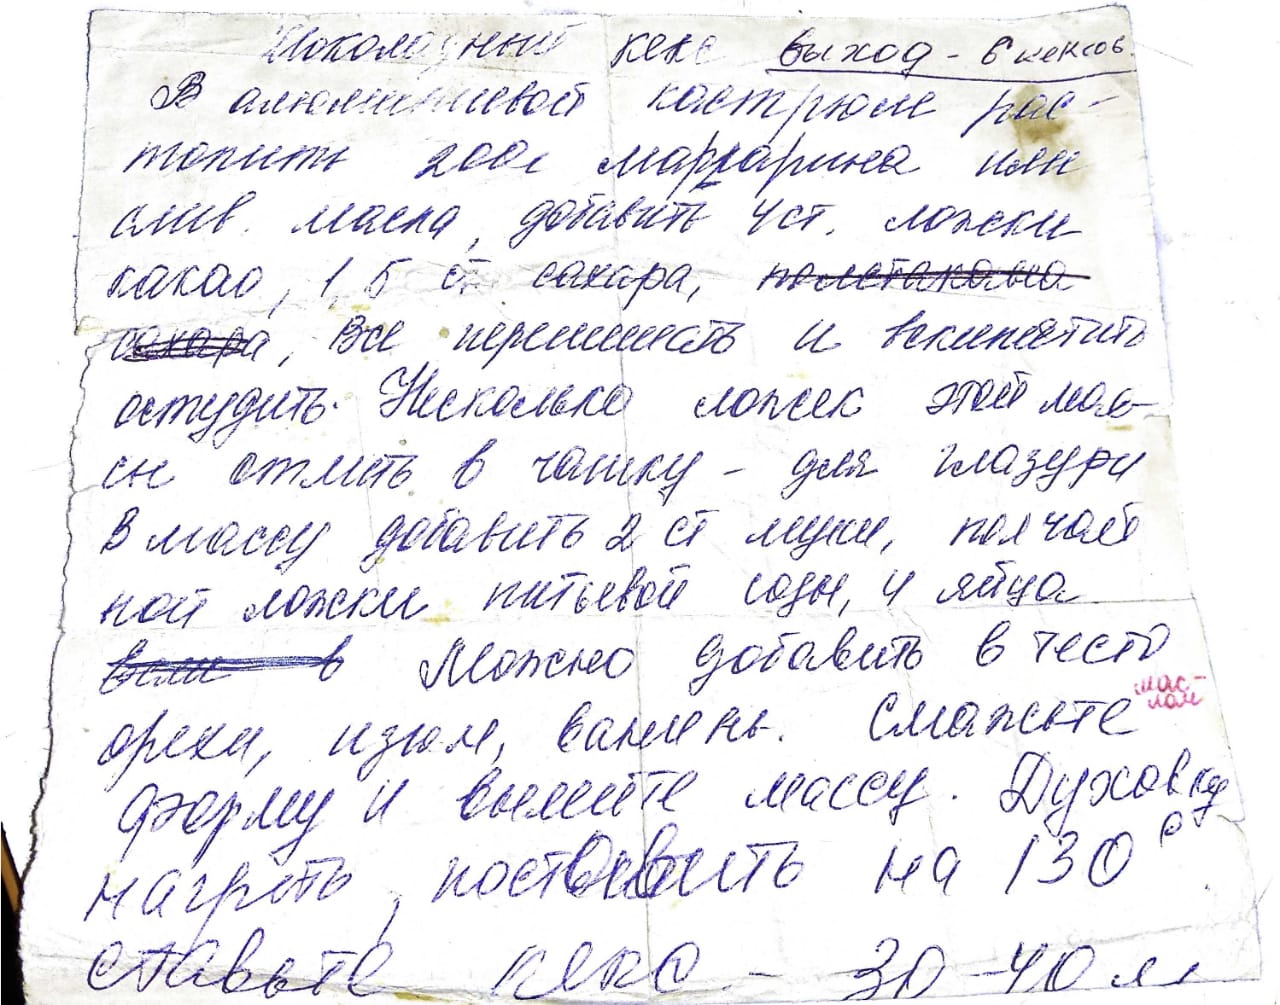 Шоколадный кекс выход - 6 кексов.
В алюминиевой кастрюле рас-
топить 200г маргарина или
слив. масла, добавить 4 ст. ложки
какао, 1,5 ст сахара, полстакана
сахара, Все перемешать и вскипятить
остудить. Несколько ложек этой мас-
сы отлить в чашку - для глазури
В массу добавить 2 ст муки, пол чай
ной ложки питьевой соды, 4 яйца
Можно добавить в тесто
орехи, изюм, ваниль. Смажьте мас-
лом
форму и вылейте массу. Духовку
нагреть, поставить на 130°
ставьте кекс - 30-40 м